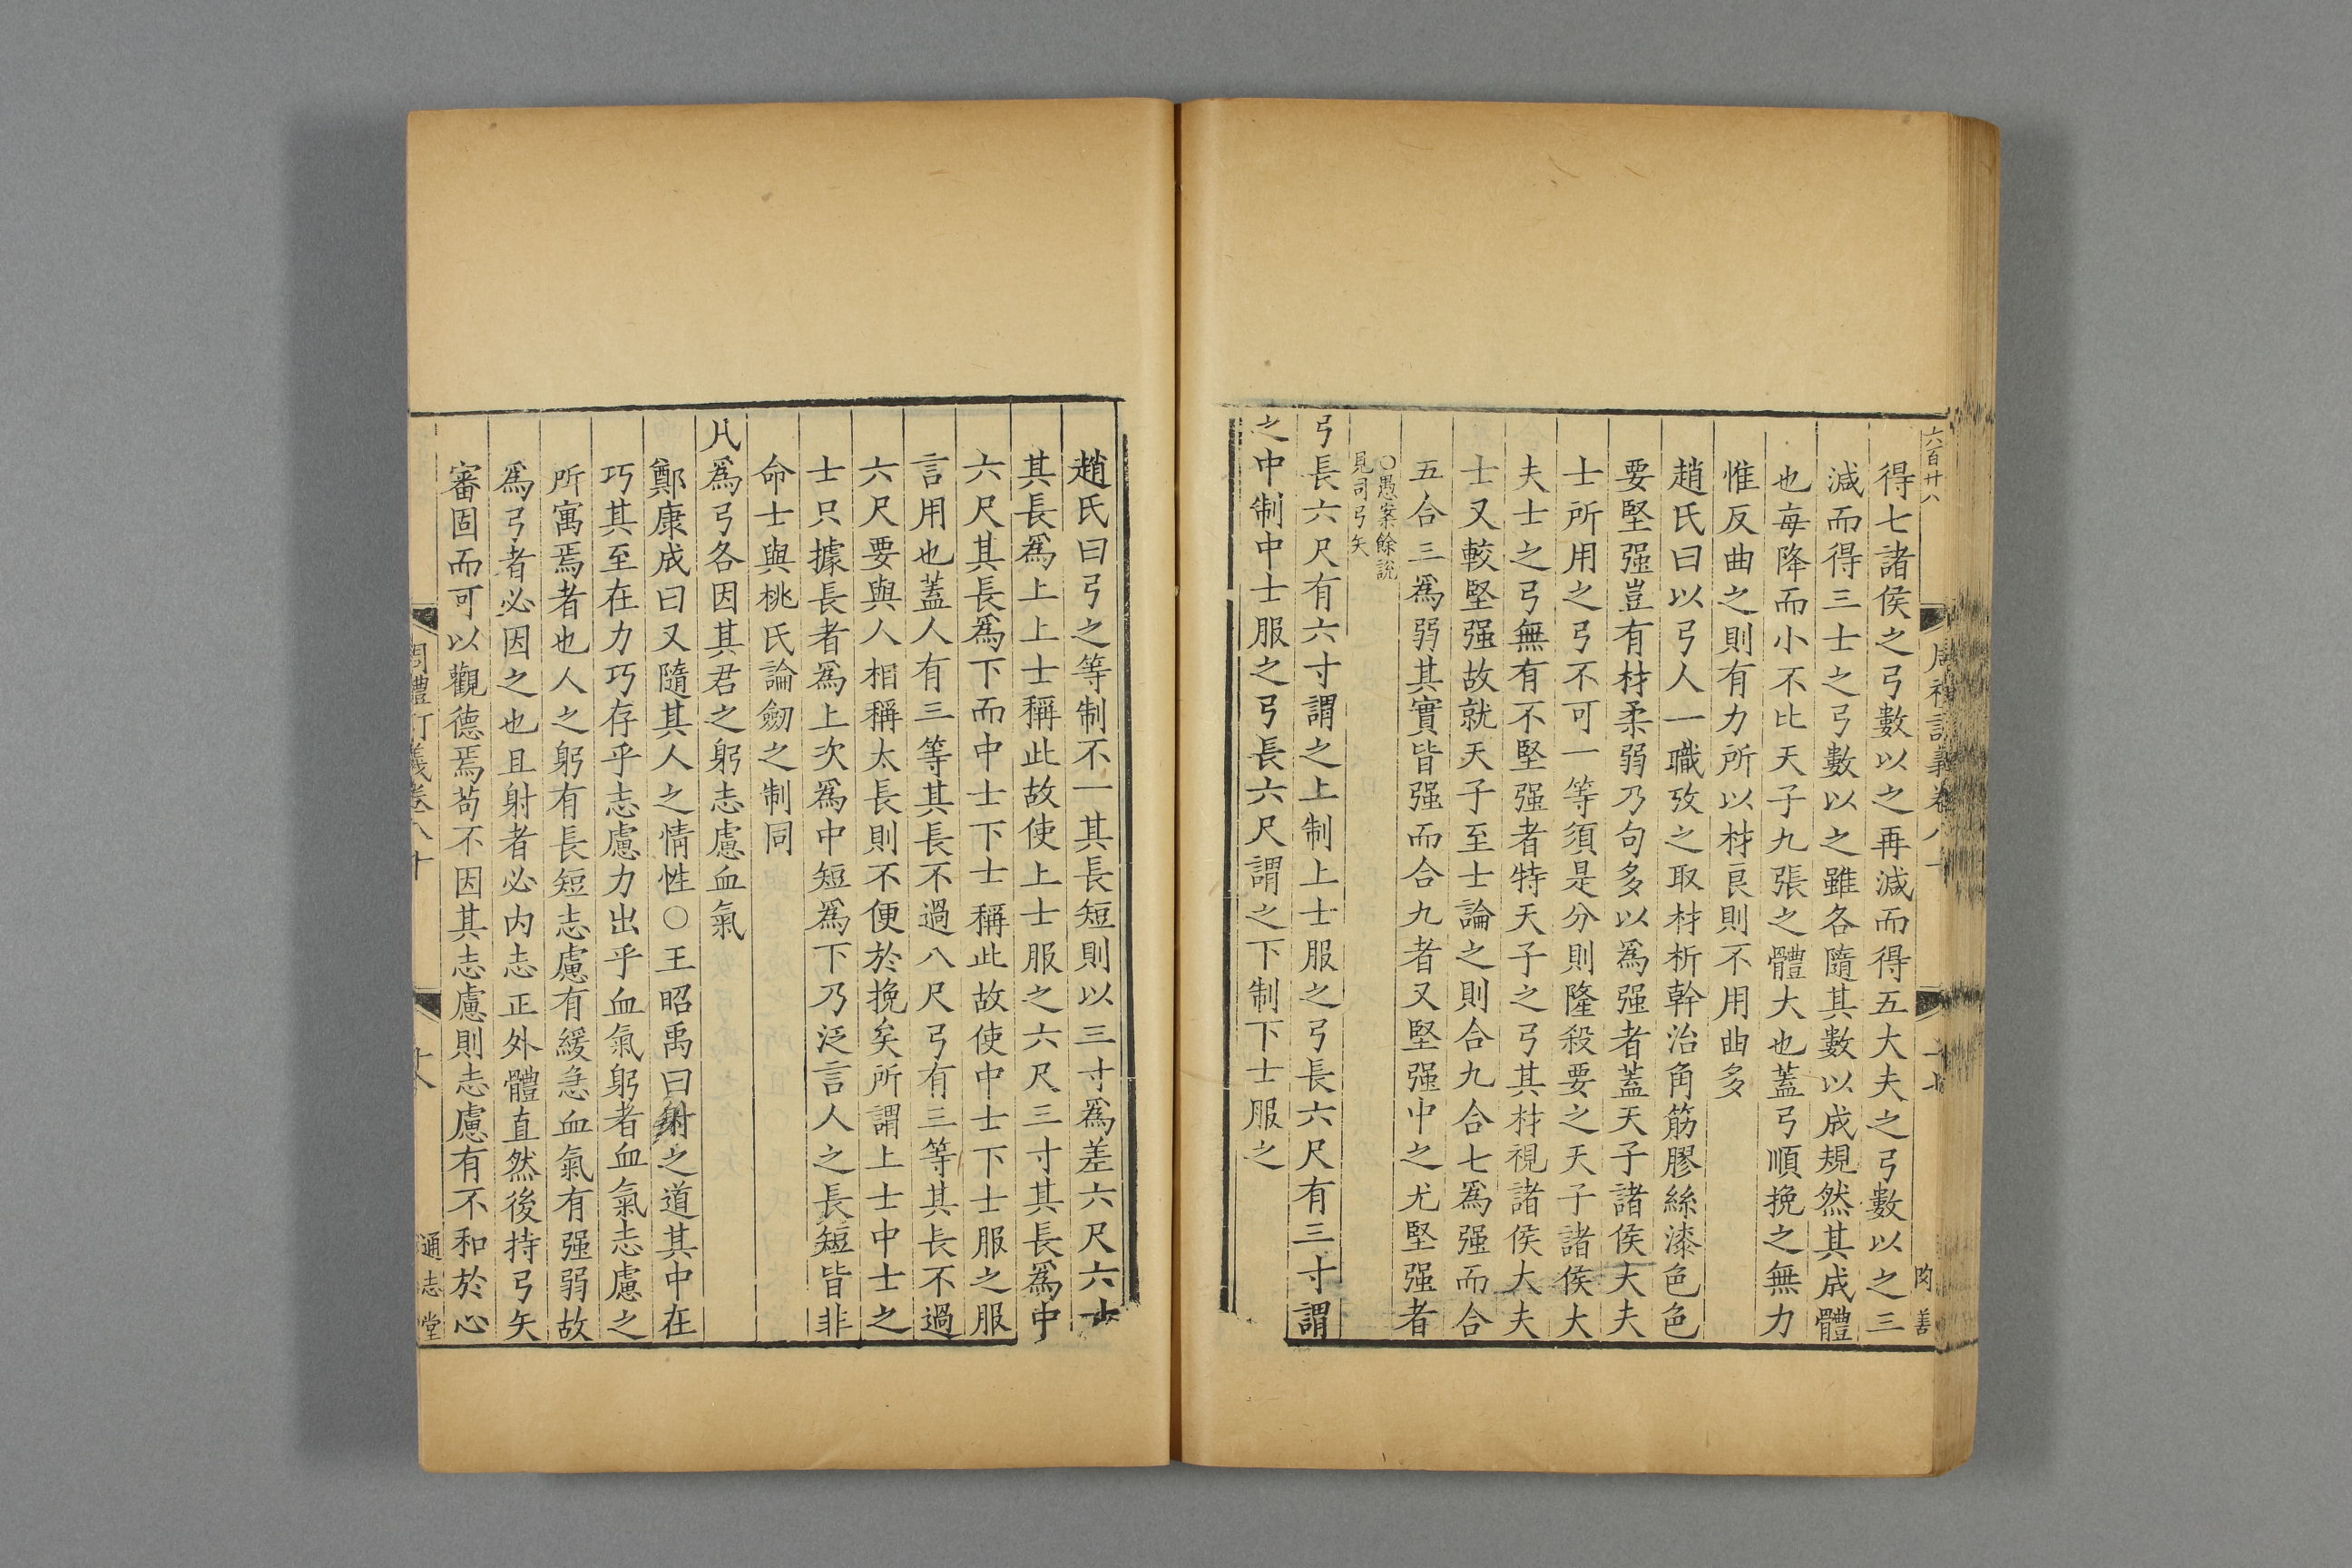 六百廿八
周禮訂義卷八十
十七
得七諸侯之弓數以之再減而得五大夫之弓數以之三
減而得三士之弓數以之雖各隨其數以成規然其成體
也每降而小不比天子九張之體大也蓋弓順挽之無力
惟反曲之則有力所以材良則不用曲多
趙氏曰以弓人一職攷之取材析幹治角筋膠絲漆色色
要堅强豈有材柔弱乃句多以爲强者蓋天子諸侯大夫
士所用之弓不可一等須是分則隆殺要之天子諸侯大
夫士之弓無有不堅强者特天子之弓其材視諸侯大夫
士又較堅强故就天子至士論之則合九合七爲强而合
五合三爲弱其實皆强而合九者又堅强中之尤堅强者
○愚案餘說
見司弓矢
弓長六尺有六寸謂之上制上士服之弓長六尺有三寸謂
之中制中士服之弓長六尺謂之下制下士服之
趙氏曰弓之等制不一其長短則以三寸爲差六尺六寸
其長爲上上士稱此故使上士服之六尺三寸其長爲中
六尺其長爲下而中士下士稱此故使中士下士服之服
言用也蓋人有三等其長不過八尺弓有三等其長不過
六尺要與人相稱太長則不便於挽矣所謂上士中士之
士只據長者爲上次爲中短爲下乃泛言人之長短皆非
命士與桃氏論劒之制同
凡爲弓各因其君之躬志慮血氣
鄭康成曰又隨其人之情性○王昭禹曰射之道其中在
巧其至在力巧存乎志慮力出乎血氣躬者血氣志慮之
所寓焉者也人之躬有長短志慮有緩急血氣有强弱故
爲弓者必因之也且射者必内志正外體直然後持弓矢
審固而可以觀德焉苟不因其志慮則志慮有不和於心
周禮訂義卷八十
十八
通志堂